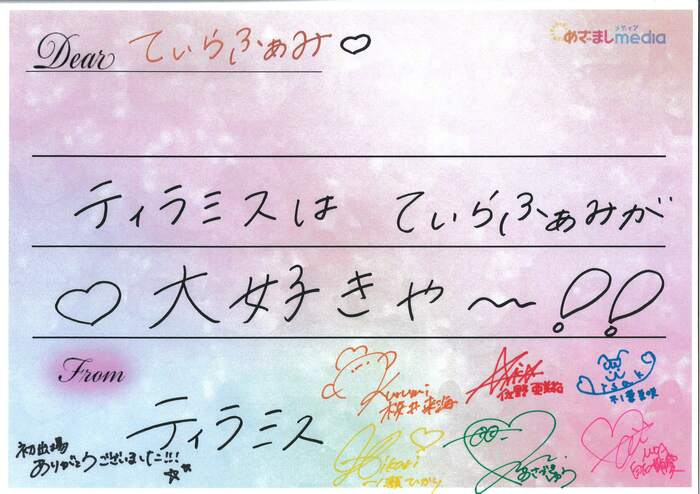 Dear てぃらふぁみ♡
めざましmedia
メディア
ティラミスは てぃらふぁみが
♡大好きや〜!!
From
ティラミス
初出場
ありがとうございました!!!
Kurumi
Hikari
一瀬ひかり